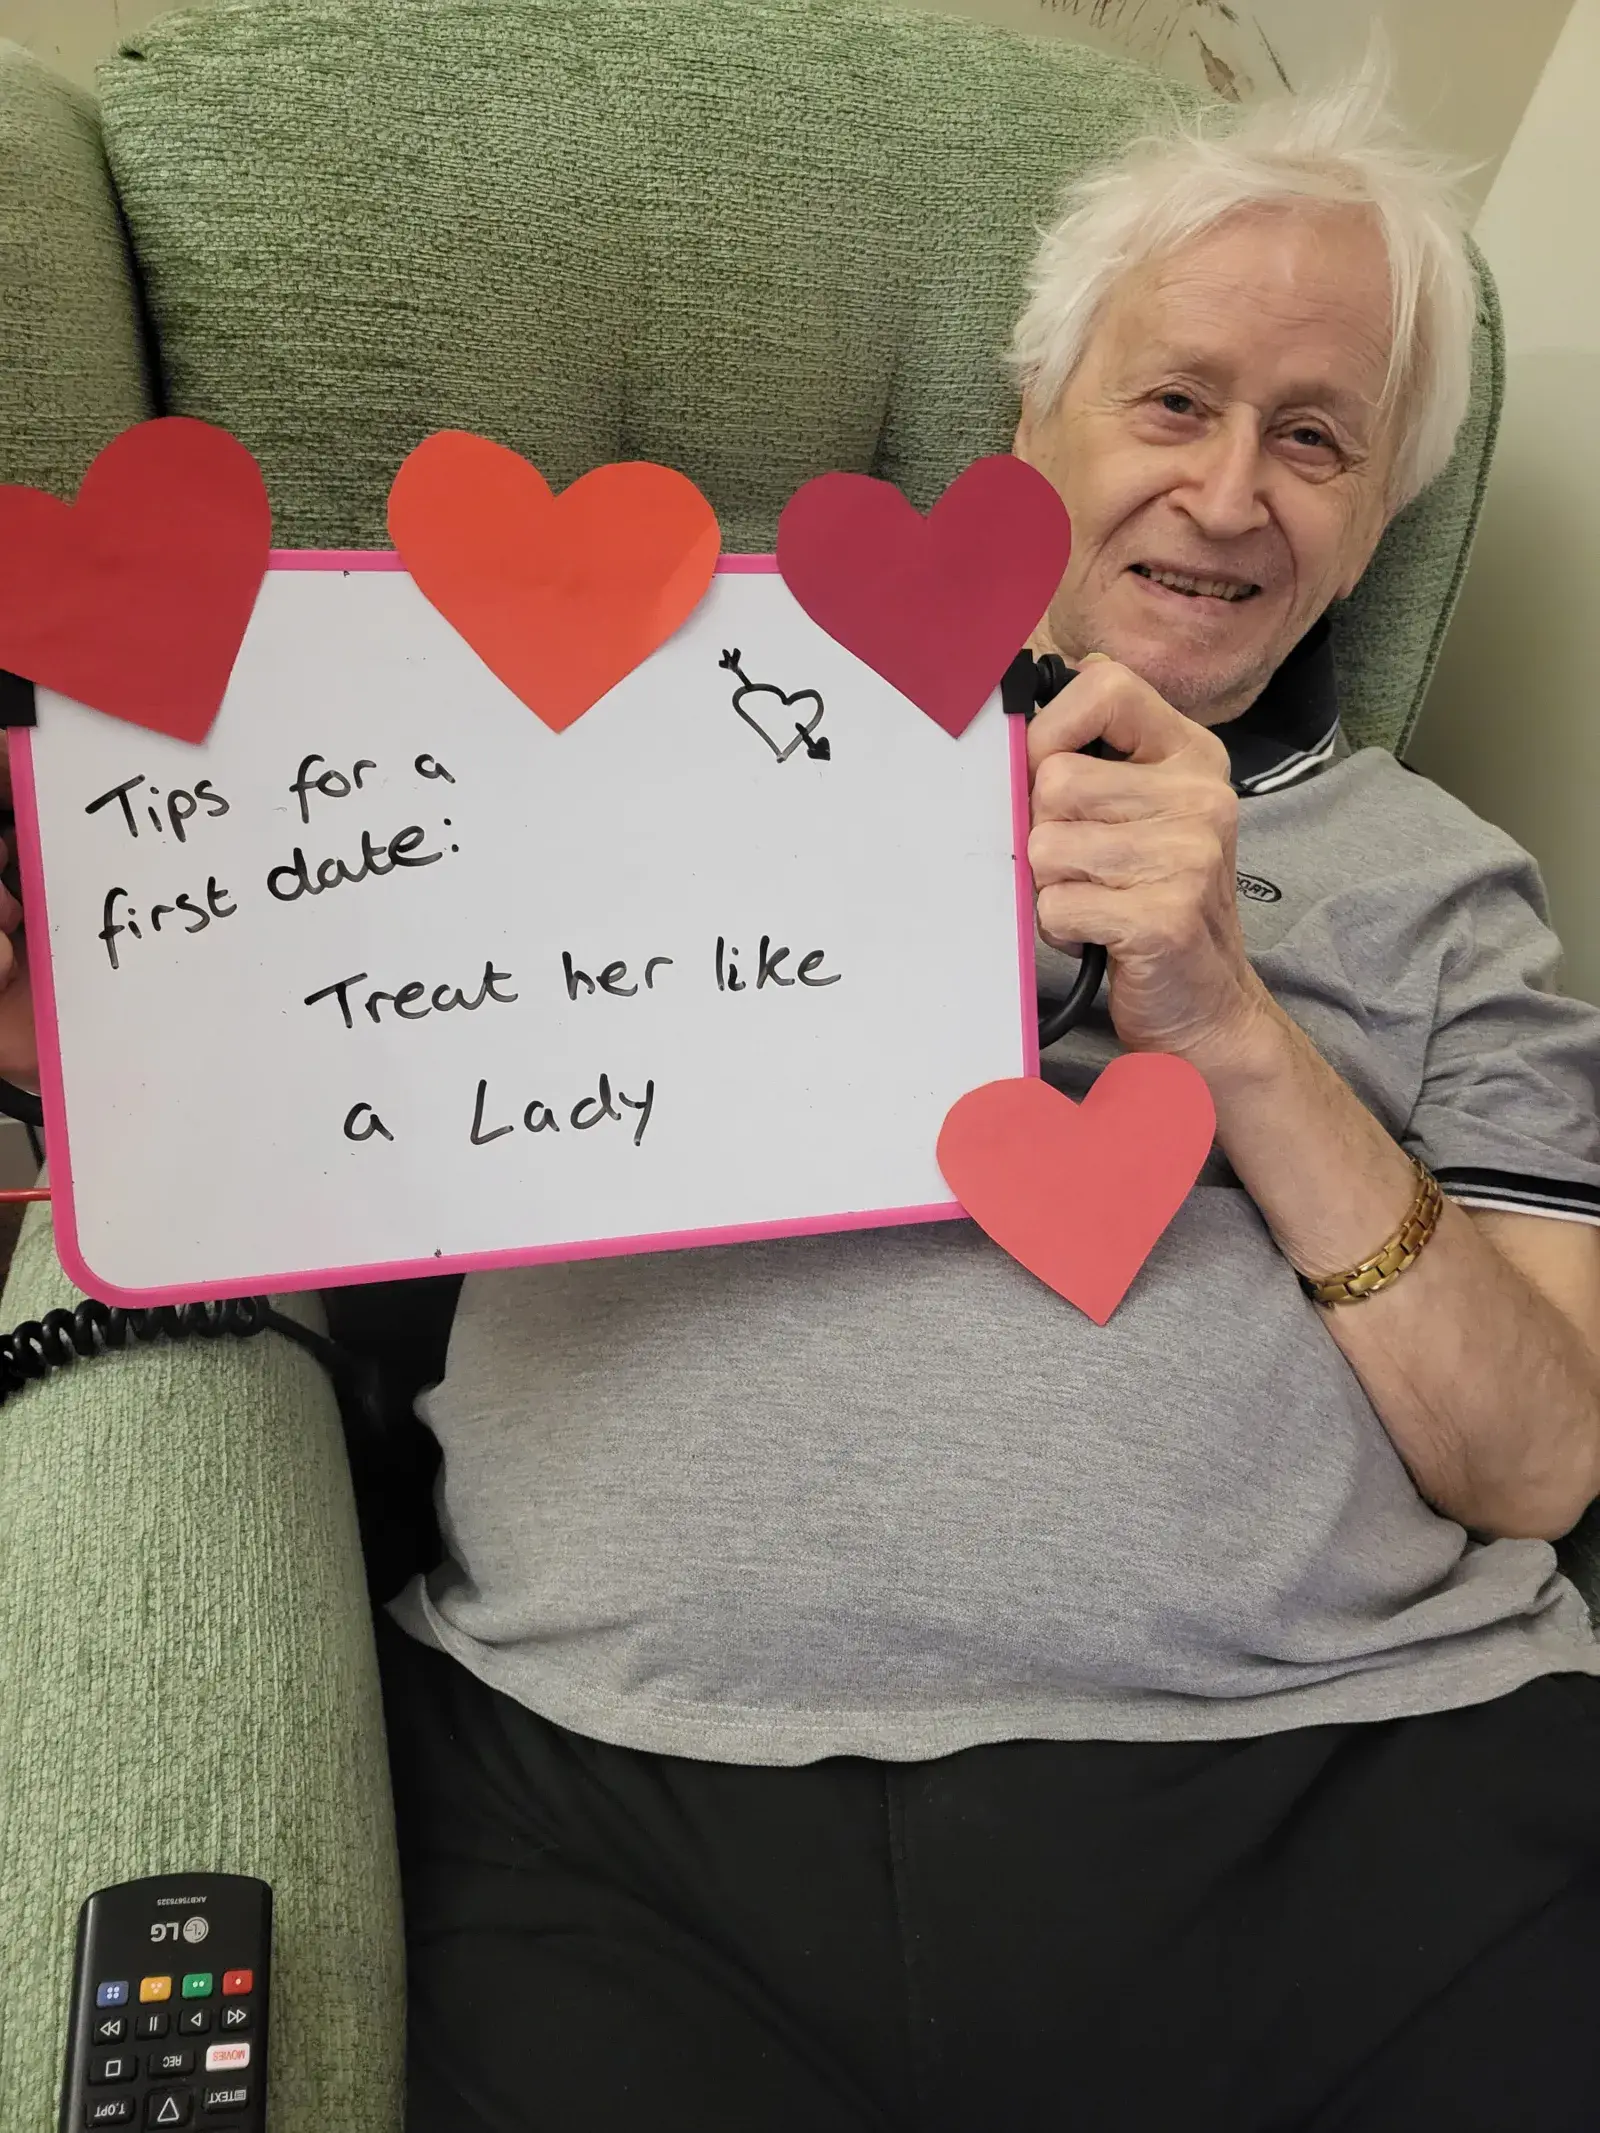 Tips for a
first date:
Treat her like
a Lady
AKB75675325
LG
MOVIES
REC
TEXT
T.OPT